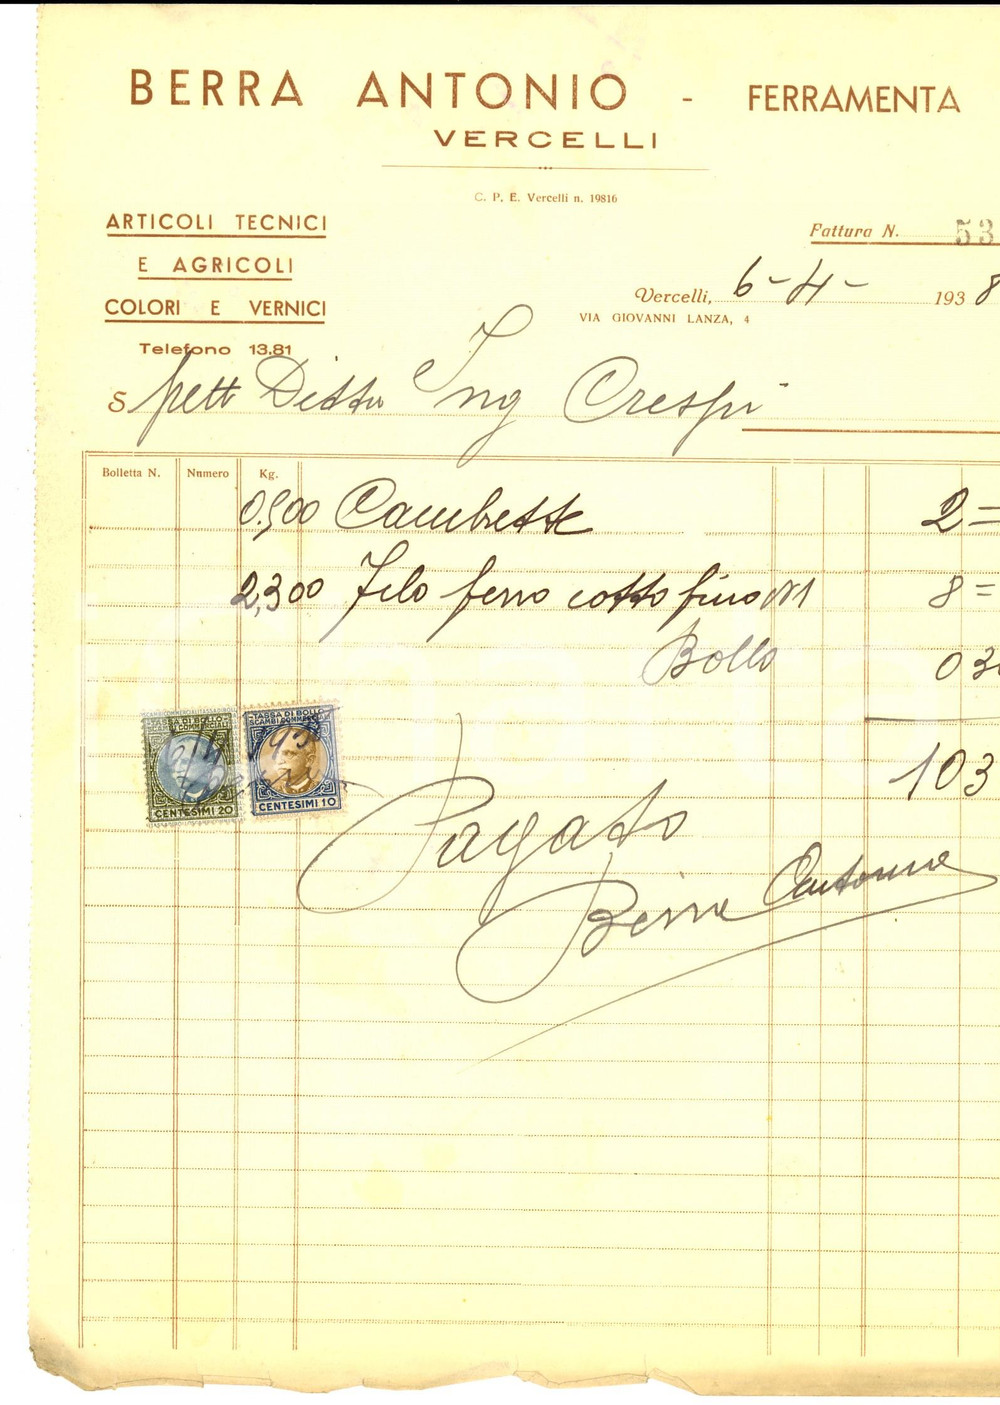 BERRA ANTONIO - FERRAMENTA
VERCELLI
C. P. E. Vercelli n. 19816
ARTICOLI TECNICI
E AGRICOLI
COLORI E VERNICI
Telefono 13.81
Fattura N. 53
Vercelli, 6-4- 1938
VIA GIOVANNI LANZA, 4
Spett Ditta Ing Crespi
Bolletta N. Numero Kg.
0.500 Cambrette 2=
2,300 Filo ferro cotto fino N1 8=
Bollo 030
103
TASSA DI BOLLO
SCAMBI COMMERCIALI
CENTESIMI 20
TASSA DI BOLLO
SCAMBI COMMERCIALI
CENTESIMI 10
Pagato
Berra Antonio